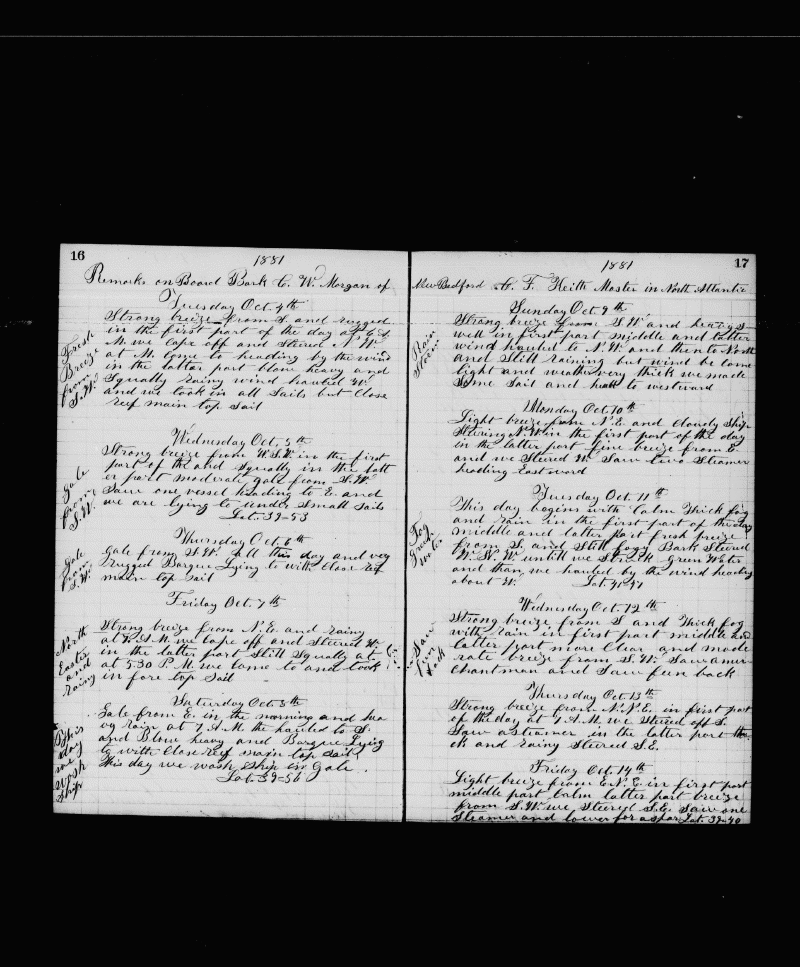 16
1881
Remarks on Board Bark C. W. Morgan of
Tuesday Oct. 4th
Fresh
Breize
from
S.W.
Strong breize from S. and rugged
in the first part of the day at 6 A
M we Cape off and Steered N. W.
at M. Come to heading by the wind
in the latter part blow heavy and
Squally rainy wind hauled W.
and we took in all Sails but Close
reef main top Sail
Wednesday Oct. 5th
Gale
from
S.W.
Strong breize from W.S.W. in the first
part of the and Squally in the latt
er part moderate gale from S.W.
Saw one vessel heading to E. and
we are lying to under Small Sails
Lat. 39-53
Thursday Oct. 6th
Gale
from
S.W.
Gale from S.W. all this day and very
rugged Barque Lying to with Close reef
main top Sail
Friday Oct. 7th
North
Easter
and
rainy
Strong breize from N.E. and rainy
at A M we Cape off and Steered W.
in the latter part Still Squally at
at 5.30 P.M. we Came to and took
in fore top Sail
Saturday Oct 8th
This
day
we
Wash
Ship
Gale from E. in the morning and hea
vy rain at 7 A.M. the hauled to S.
and Blow heavy and Barque Lying
to with Close reef main top Sail
This day we wash Ship in Gale.
Lat. 39-56
17
1881
New Bedford C. F. Keith Master in North Atlantic
Sunday Oct. 9th
Rain
Storm
Strong breize from S.W. and heavy S
well in first part middle and latter
wind hauled to N.W. and then to North
and Still raining but wind be Come
light and weather very thick we made
Some Sail and to westward
Monday Oct. 10th
Light breize from N.E. and Cloudy Ship
Steering N.W. in the first part of the day
in the latter part fine breize from E.
and we Steered W. Saw two Steamer
heading Eastward
Tuesday Oct. 11th
Fog
Green
Water
This day begins with Calm Thick fog
and rain in the first part of the day
middle and latter part fresh breize
from S. and Still foggy Bark Steered
W. N. W. untill we Struck Green Water
and than we hauled by the wind heading
about W. Lat. 41-47
Wednesday Oct. 12th
Saw
fun
back
Strong breize from S and Thick fog
with rain in first part middle and
latter part more Clear and mode
rate breize from S.W. Saw a mer
chantman and Saw fun back
Thursday Oct. 13th
Strong breize from N.N.E. in first part
of the day at 7 A.M. we Steered off S.
Saw a steamer in the latter part thi
ck and rainy Steered S.E.
Friday Oct. 14th
Light breize from E.N.E. in first part
middle part Calm latter part breize
from S.W. we Steered S.E. Saw one
Steamer and lower for a spar Lat. 39-40